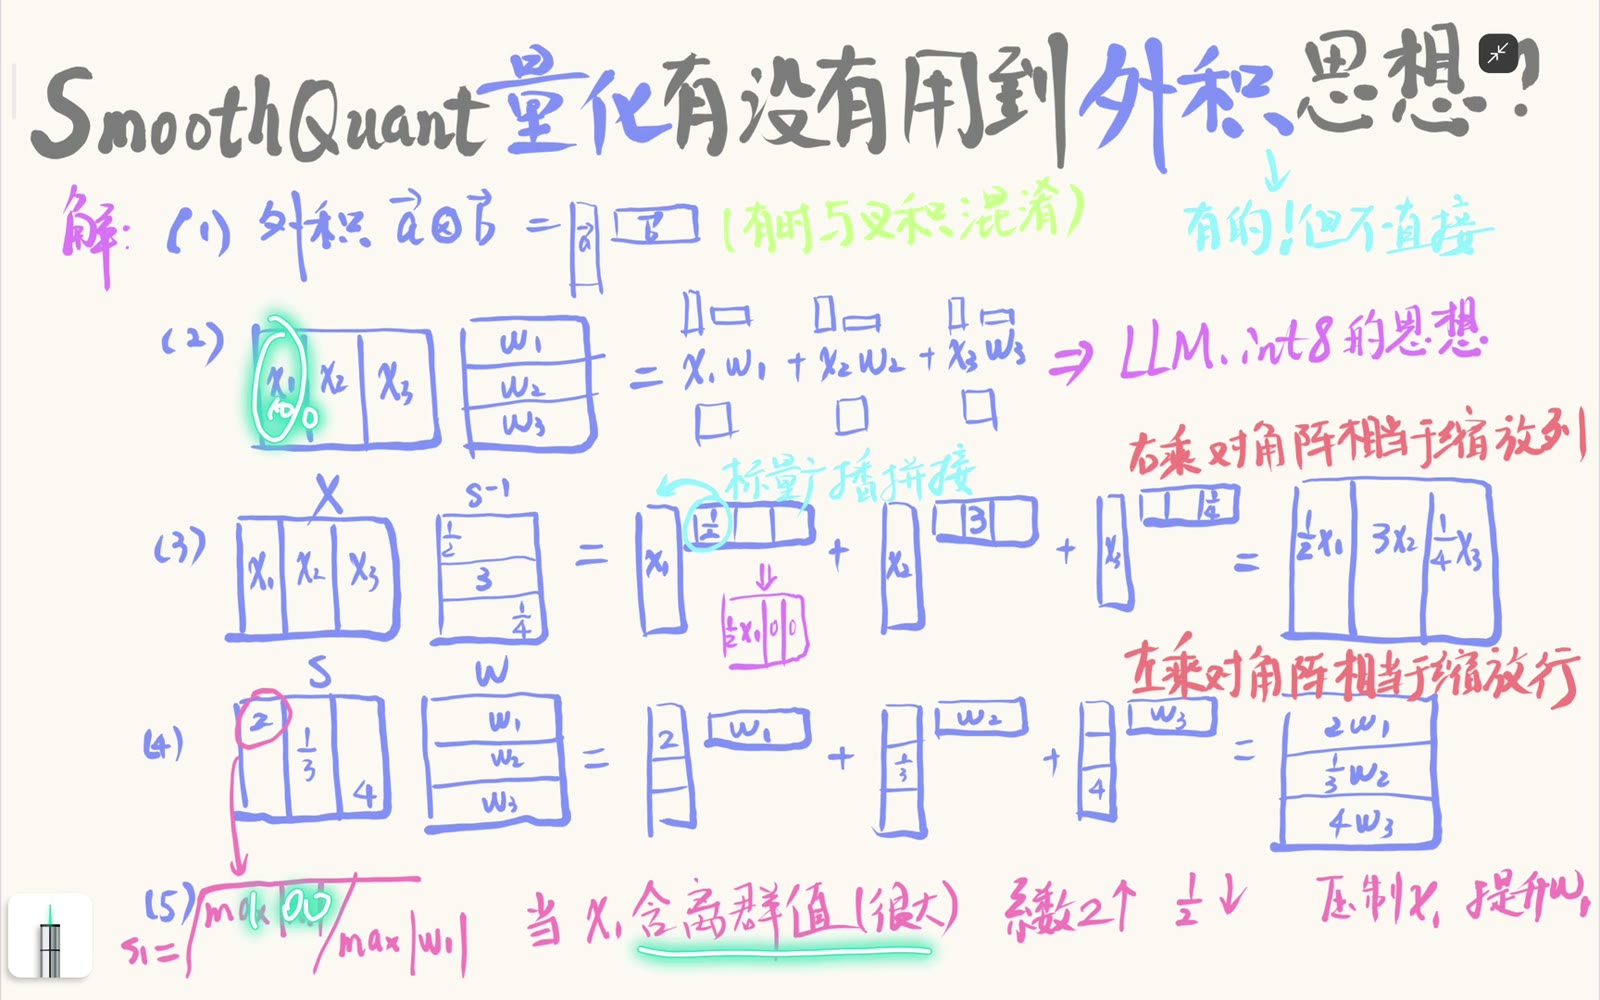 SmoothQuant量化有没有用到外积思想?
解: (1) 外积 a⊗b = a b (有时与叉积混淆)
有的!但不直接
(2) x₁ x₂ x₃ w₁ w₂ w₃ = x₁w₁ + x₂w₂ + x₃w₃ ⇒ LLM.int8的思想
100
右乘对角阵相当于缩放列
标量广播拼接
X S-1
(3) x₁ x₂ x₃ 1/2 3 1/4 = x₁ 1/2 + x₂ 3 + x₃ 1/4 = 1/2x₁ 3x₂ 1/4x₃
⇓
1/2x₁ 0 0
左乘对角阵相当于缩放行
S W
(4) 2 1/3 4 w₁ w₂ w₃ = 2 w₁ + 1/3 w₂ + 4 w₃ = 2w₁ 1/3w₂ 4w₃
(5) s₁=√max|x₁|/max|w₁| 当x₁含离群值(很大) 系数2↑ 1/2↓ 压制x₁ 提升w₁
100